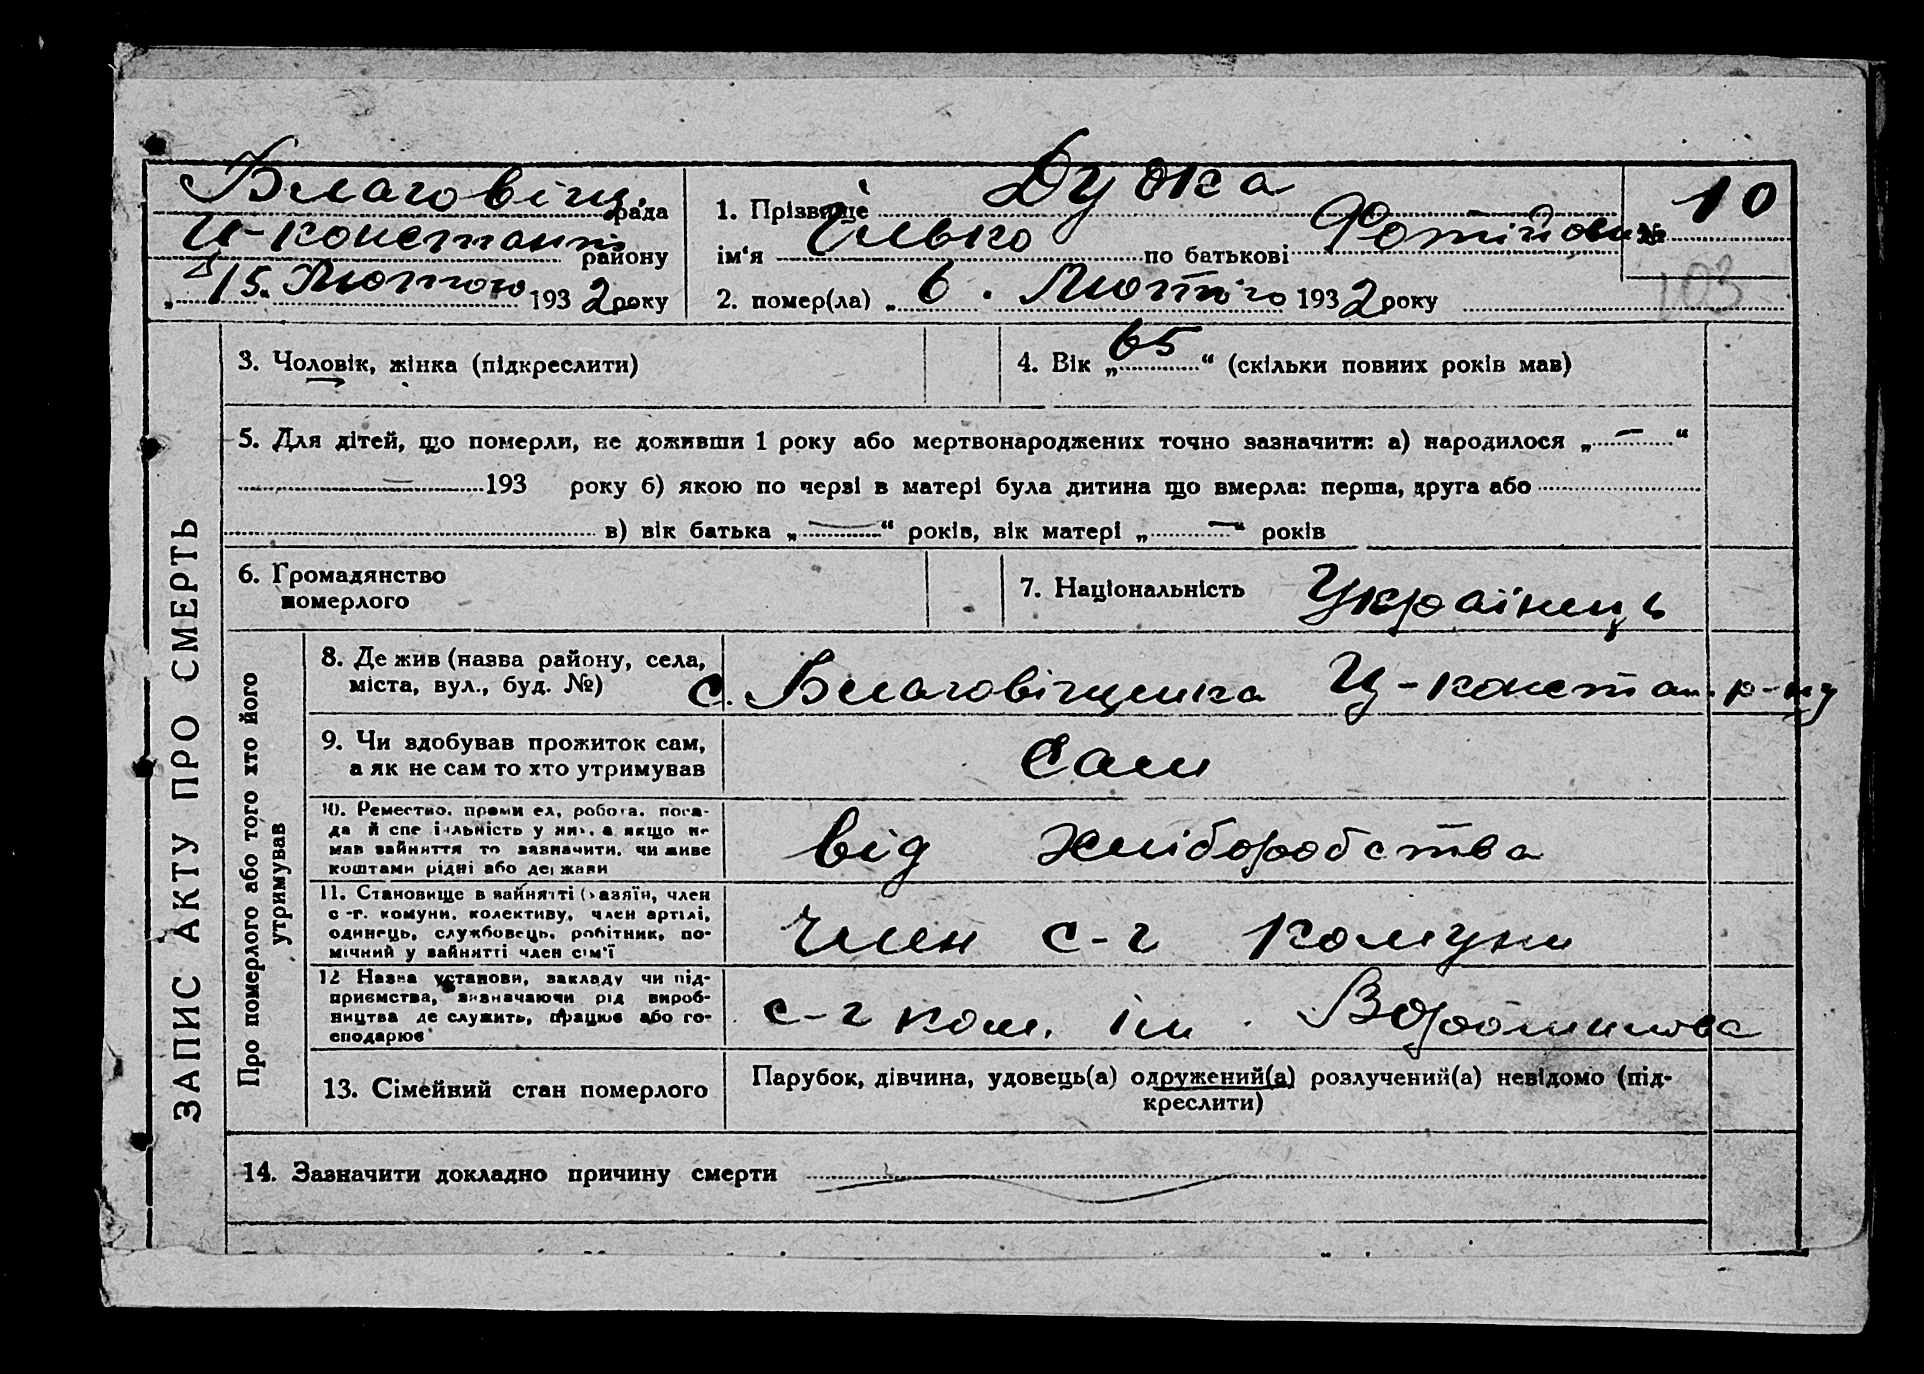 ЗАПИС АКТУ ПРО СМЕРТЬ
Благовіщ. рада
Ц-констант району
„15“ Лютого 1932 року
1. Прізвище Дудка
ім'я Ілько по батькові Фотійович
№ 10
103
2. помер(ла) „6. Лютого 1932 року
3. Чоловік, жінка (підкреслити)
4. Вік „65“ (скільки повних років мав)
5. Для дітей, що померли, не доживши 1 року або мертвонароджених точно зазначити: а) народилося „—“
— 193 року б) якою по черзі в матері була дитина що вмерла: перша, друга або
в) вік батька „—“ років, вік матері „—“ років
6. Громадянство
померлого
7. Національність Українець
Про померлого або того хто його
утримував
8. Де жив (назва району, села,
міста, вул., буд. №)
с. Благовіщинка Ц-констан. р-ну
9. Чи здобував прожиток сам,
а як не сам то хто утримував
Сам
10. Ремество, промисел, робота, поса-
да й спеціяльність у них, а якщо не
мав зайняття то зазначити, чи живе
коштами рідні або держави
від хліборобства
11. Становище в зайнятті (хазяїн, член
с.-г. комуни, колективу, член артілі,
одинець, службовець, робітник, по-
мічний у зайнятті член сім'ї
Член с-г Комуни
12 Назва установи, закладу чи під-
приємства, визначаючи рід вироб-
ництва де служить, працює або го-
сподарює
с-г ком. ім. Ворошилова
13. Сімейний стан померлого
Парубок, дівчина, удовець(а) одружений(а) розлучений(а) невідомо (під-
креслити)
14. Зазначити докладно причину смерти